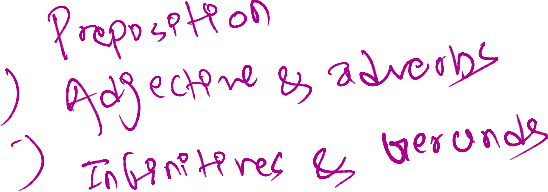 Preposition
) Adjective & adverbs
) Infinitives & Gerunds